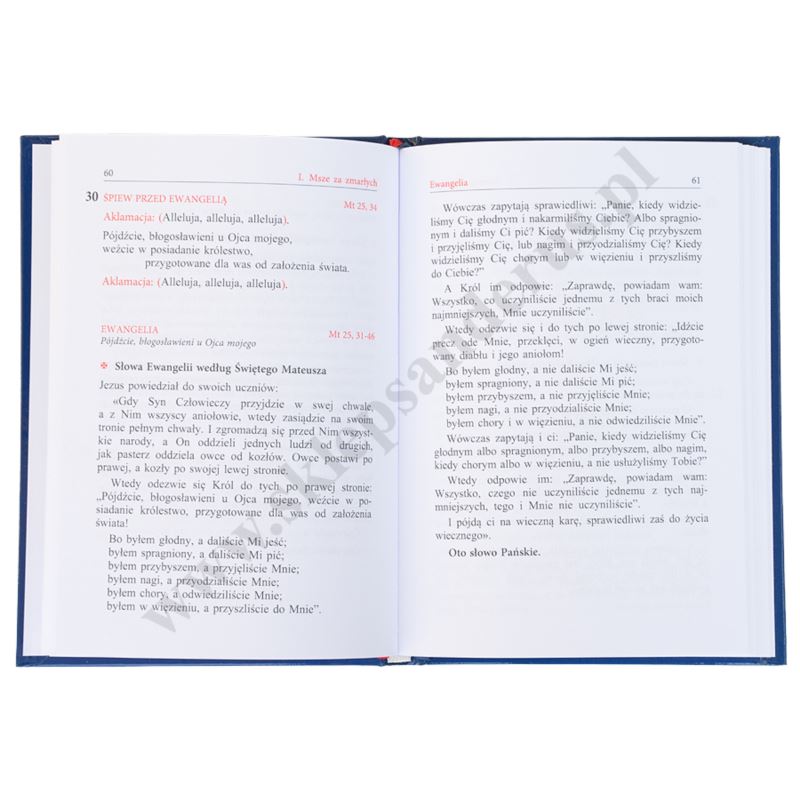 60
I. Msze za zmarłych
30 ŚPIEW PRZED EWANGELIĄ
Mt 25, 34
Aklamacja: (Alleluja, alleluja, alleluja).
Pójdźcie, błogosławieni u Ojca mojego,
weźcie w posiadanie królestwo,
przygotowane dla was od założenia świata.
Aklamacja: (Alleluja, alleluja, alleluja).
EWANGELIA
Mt 25, 31-46
Pójdźcie, błogosławieni u Ojca mojego
✠ Słowa Ewangelii według Świętego Mateusza
Jezus powiedział do swoich uczniów:
«Gdy Syn Człowieczy przyjdzie w swej chwale,
a z Nim wszyscy aniołowie, wtedy zasiądzie na swoim
tronie pełnym chwały. I zgromadzą się przed Nim wszyst-
kie narody, a On oddzieli jednych ludzi od drugich,
jak pasterz oddziela owce od kozłów. Owce postawi po
prawej, a kozły po swojej lewej stronie.
Wtedy odezwie się Król do tych po prawej stronie:
„Pójdźcie, błogosławieni u Ojca mojego, weźcie w po-
siadanie królestwo, przygotowane dla was od założenia
świata!
Bo byłem głodny, a daliście Mi jeść;
byłem spragniony, a daliście Mi pić;
byłem przybyszem, a przyjęliście Mnie;
byłem nagi, a przyodzialiście Mnie;
byłem chory, a odwiedziliście Mnie;
byłem w więzieniu, a przyszliście do Mnie”.
Ewangelia
61
Wówczas zapytają sprawiedliwi: „Panie, kiedy widzie-
liśmy Cię głodnym i nakarmiliśmy Ciebie? Albo spragnio-
nym i daliśmy Ci pić? Kiedy widzieliśmy Cię przybyszem
i przyjęliśmy Cię, lub nagim i przyodzialiśmy Cię? Kiedy
widzieliśmy Cię chorym lub w więzieniu i przyszliśmy
do Ciebie?”
A Król im odpowie: „Zaprawdę, powiadam wam:
Wszystko, co uczyniliście jednemu z tych braci moich
najmniejszych, Mnie uczyniliście”.
Wtedy odezwie się i do tych po lewej stronie: „Idźcie
precz ode Mnie, przeklęci, w ogień wieczny, przygoto-
wany diabłu i jego aniołom!
Bo byłem głodny, a nie daliście Mi jeść;
byłem spragniony, a nie daliście Mi pić;
byłem przybyszem, a nie przyjęliście Mnie;
byłem nagi, a nie przyodzialiście Mnie;
byłem chory i w więzieniu, a nie odwiedziliście Mnie”.
Wówczas zapytają i ci: „Panie, kiedy widzieliśmy Cię
głodnym albo spragnionym, albo przybyszem, albo nagim,
kiedy chorym albo w więzieniu, a nie usłużyliśmy Tobie?”
Wtedy odpowie im: „Zaprawdę, powiadam wam:
Wszystko, czego nie uczyniliście jednemu z tych naj-
mniejszych, tego i Mnie nie uczyniliście”.
I pójdą ci na wieczną karę, sprawiedliwi zaś do życia
wiecznego».
Oto słowo Pańskie.
www.sklepsanderus.pl